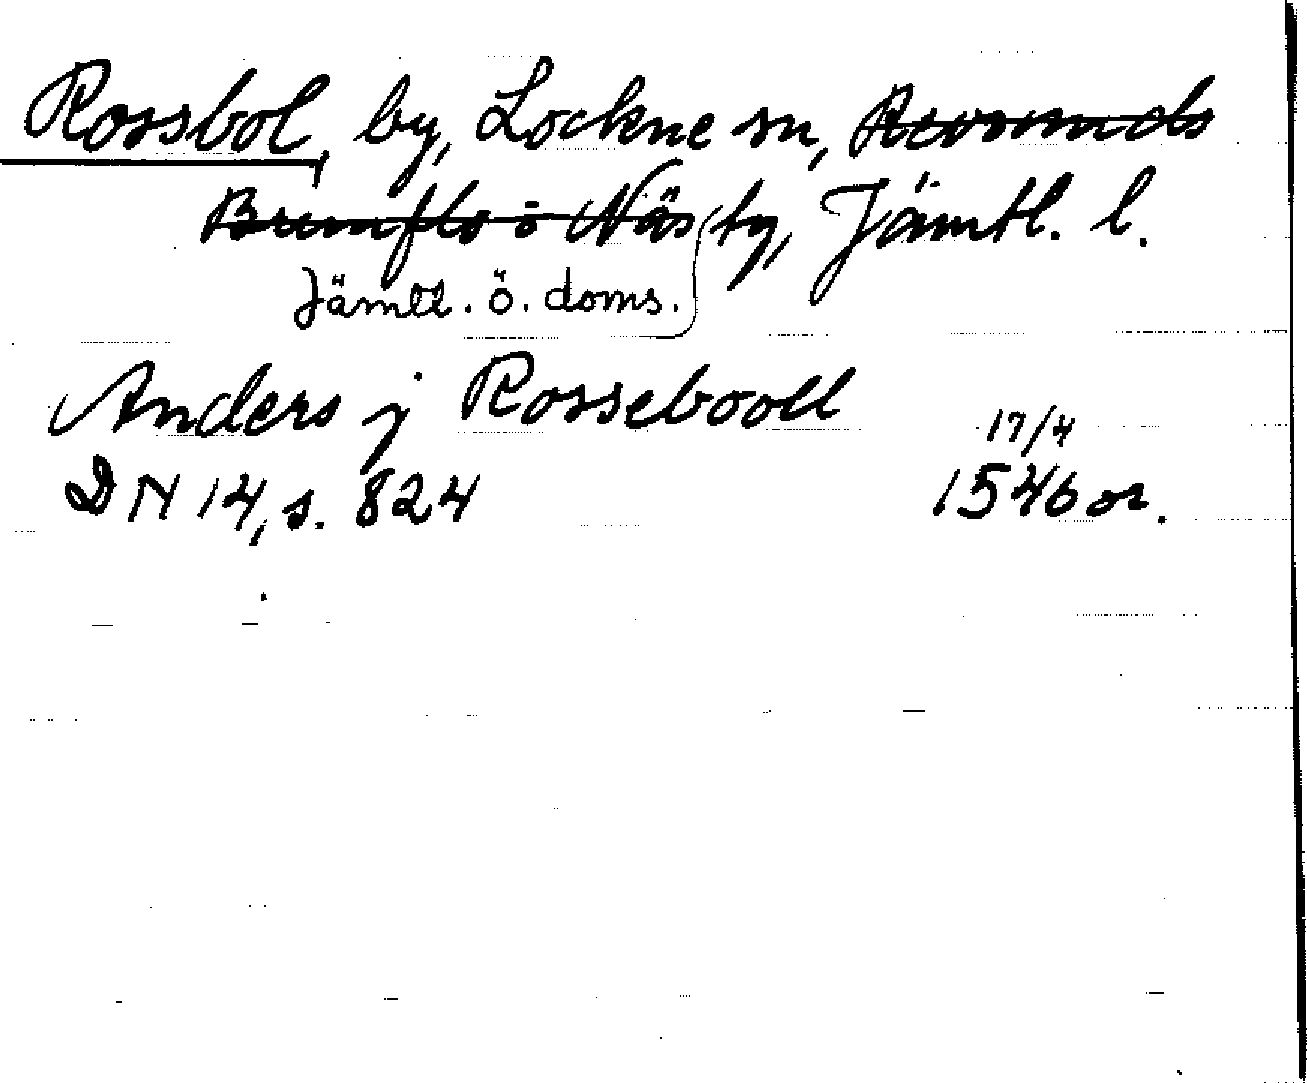 Rossbol, by, Lockne sn, Revsunds
Brunflo o Näs tg, Jämtl. l.
Jämtl. ö. doms.
Anders j Rossebooll
17/4
DN 14, s. 824 1546 or.